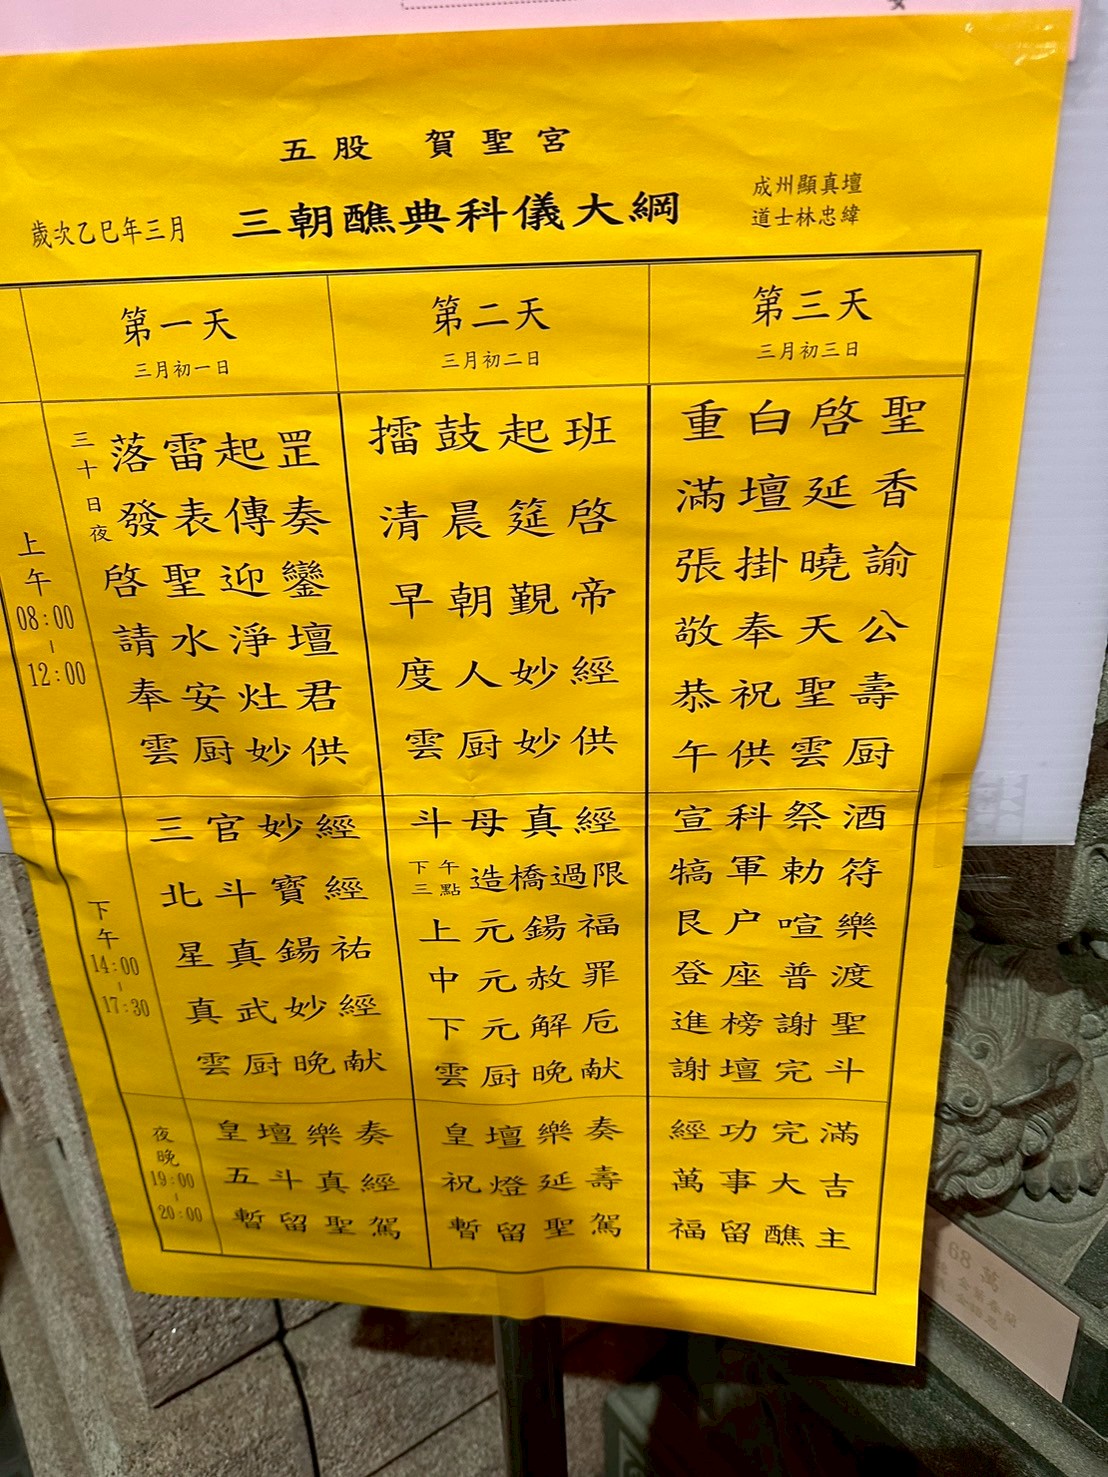 五股 賀聖宮
歲次乙巳年三月
三朝醮典科儀大綱
成州顯真壇
道士林忠緯
第一天
三月初一日
第二天
三月初二日
第三天
三月初三日
上午
08:00
-
12:00
三十日夜
落雷起罡
發表傳奏
啓聖迎鑾
請水淨壇
奉安灶君
雲厨妙供
擂鼓起班
清晨筵啓
早朝觐帝
度人妙經
雲厨妙供
重白啓聖
滿壇延香
張掛曉諭
敬奉天公
恭祝聖壽
午供雲厨
下午
14:00
-
17:30
三官妙經
北斗寶經
星真錫祐
真武妙經
雲厨晚献
斗母真經
下午三點 造橋過限
上元錫福
中元赦罪
下元解厄
雲厨晚献
宣科祭酒
犒軍勅符
艮户喧樂
登座普渡
進榜謝聖
謝壇完斗
夜晚
19:00
-
20:00
皇壇樂奏
五斗真經
暫留聖駕
皇壇樂奏
祝燈延壽
暫留聖駕
經功完滿
萬事大吉
福留醮主
68 萬